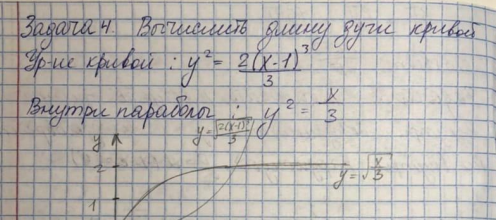 Задача 4. Вычислить длину дуги кривой
Ур-ие кривой : y² = 2(x-1)³/3
Внутри параболы : y² = x/3
y = √(2(x-1)³/3)
y
2
y = √(x/3)
1